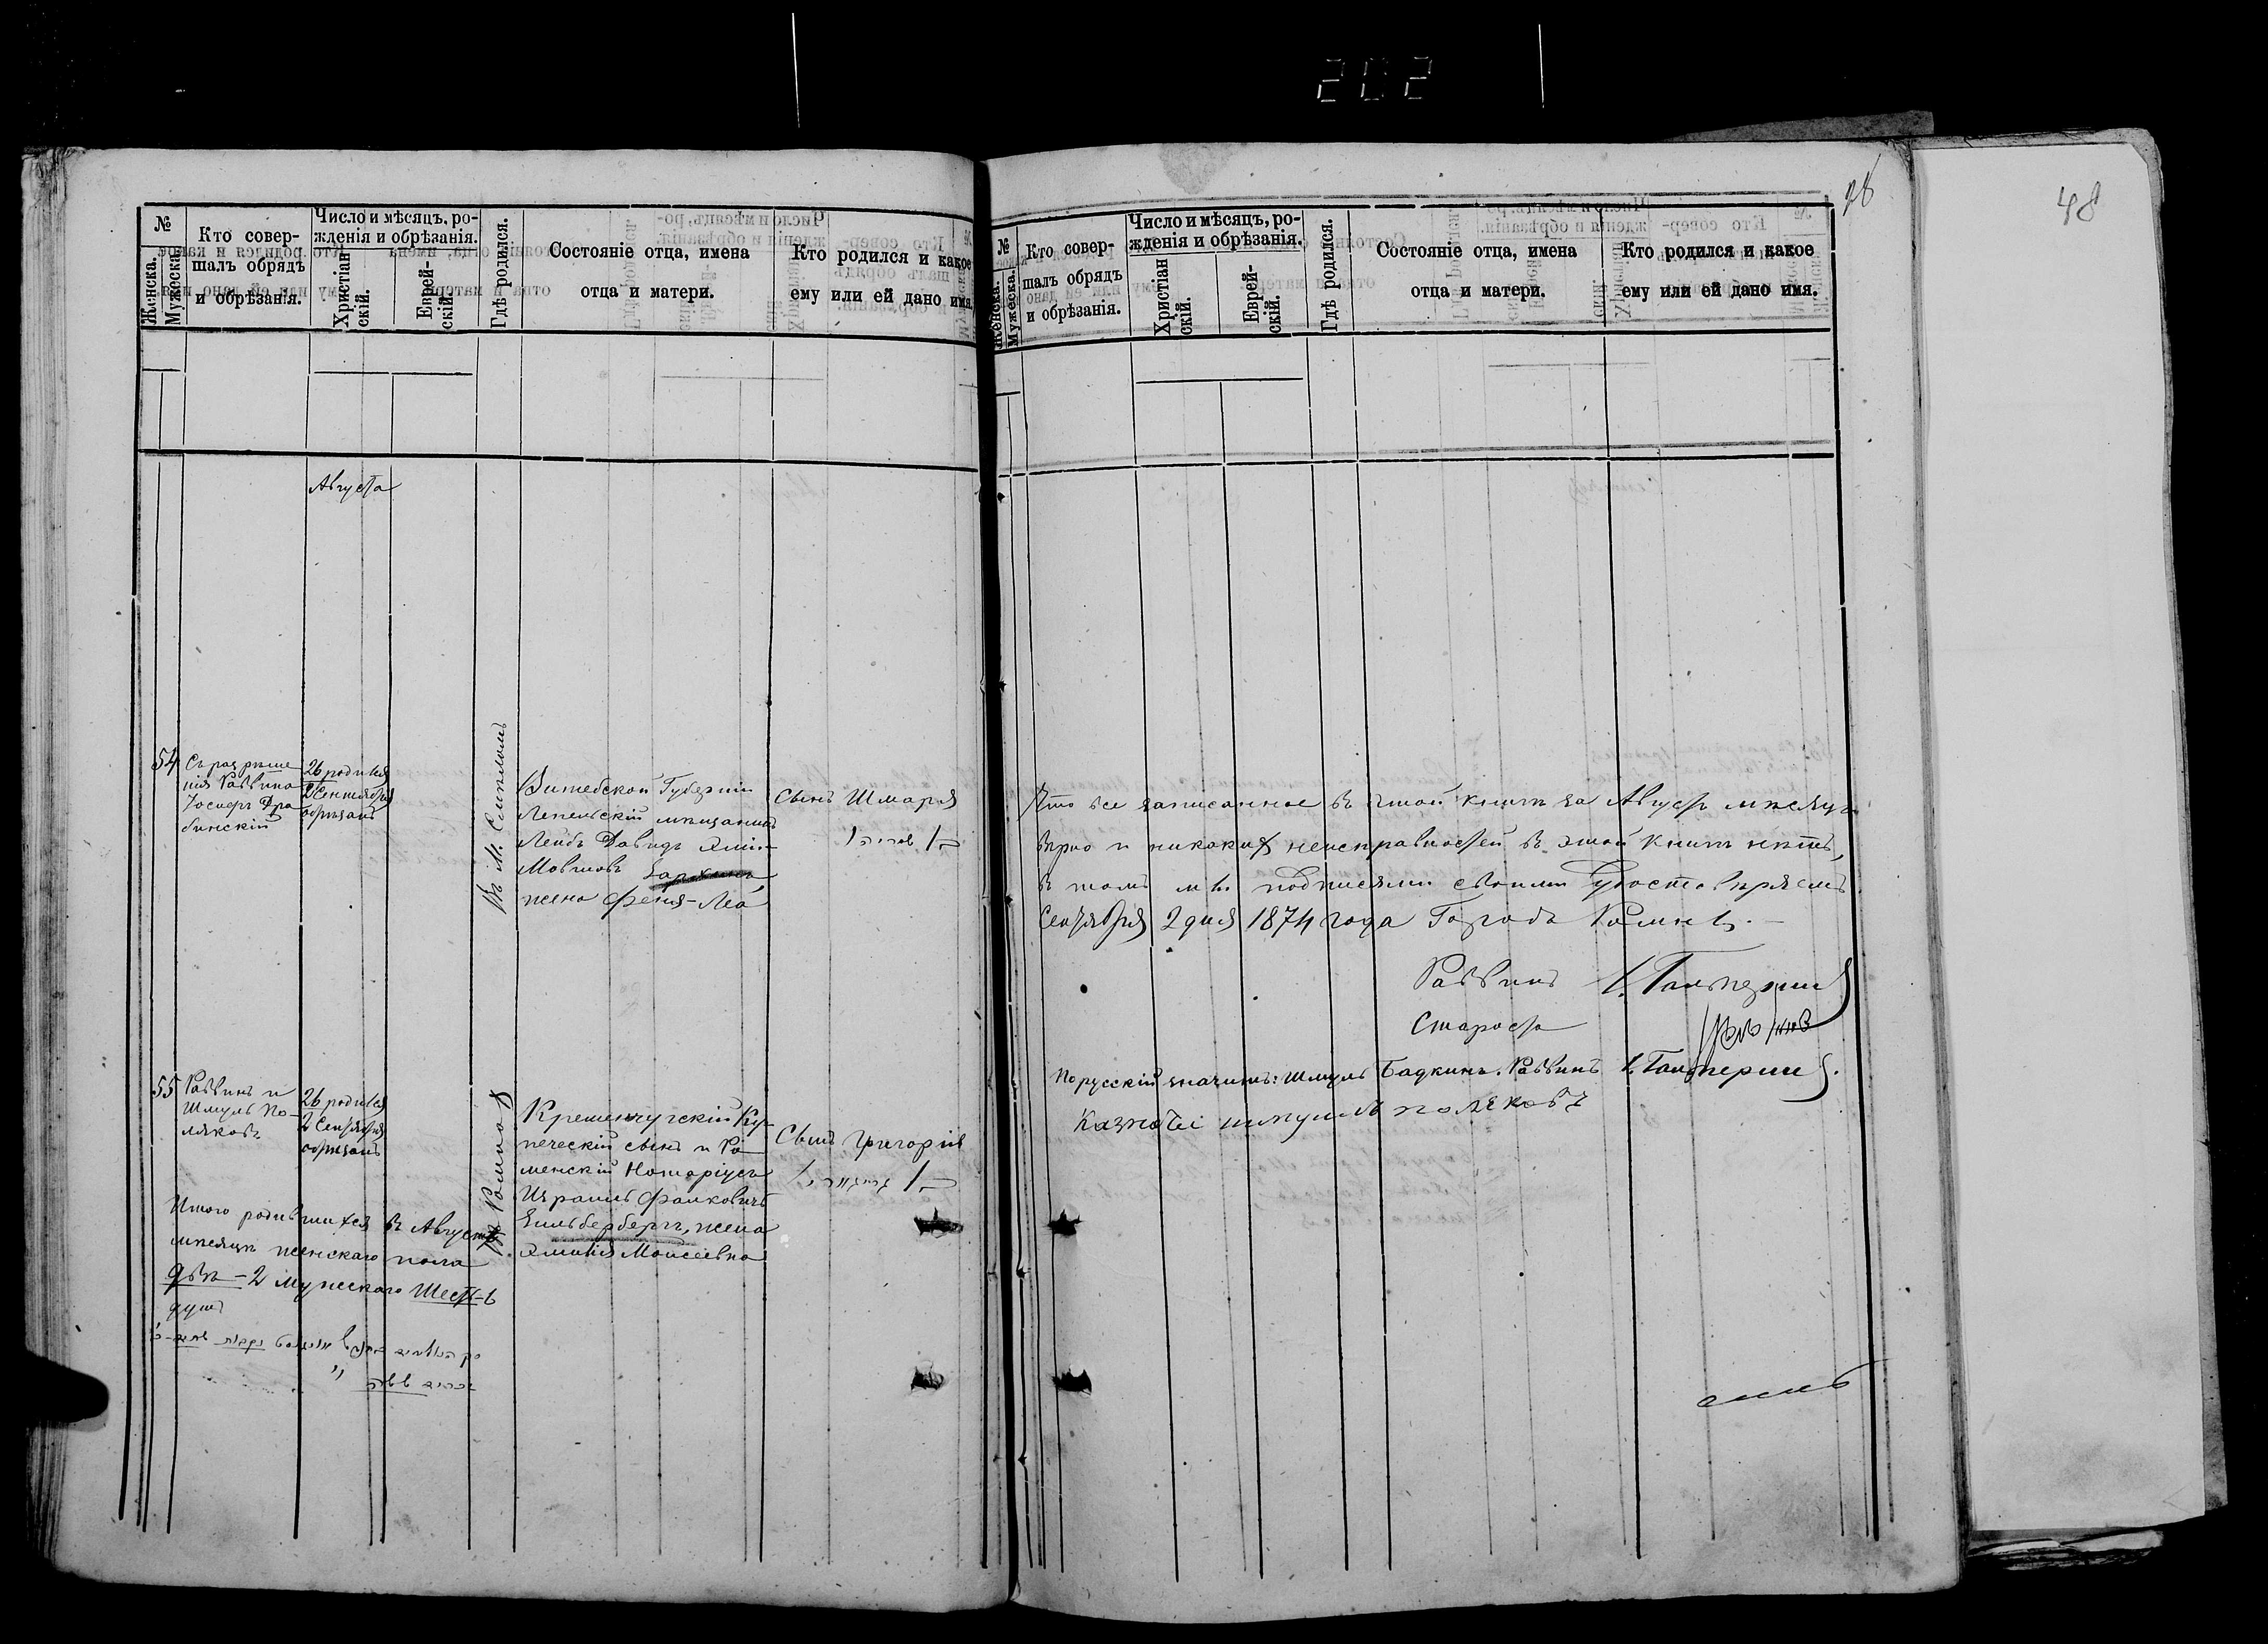 202
№
Женска.
Мужеска.
Кто совер-
шалъ обрядъ
и обрѣзанія.
Число и мѣсяцъ, ро-
жденія и обрѣзанія.
Христіан
скій.
Еврей-
скій.
Гдѣ родился.
Состояніе отца, имена
отца и матери.
Кто родился и какое
ему или ей дано имя.
Августа
54
Съ разрѣше
нія Раввина
Іосифъ Дра
бинскій
26 родился
2 Сентября
обрѣзанъ
Въ м.
Витебской Губерніи
Лепельскій мѣщанинъ
Лейбъ Давидъ
Мовшовъ
жена Феня-Леа
Сынъ Шмарія
שמריה
55
Раввинъ и
Шмуль По-
ляковъ
26 родился
2 Сентября
обрѣзанъ
Въ Ромнах
Кременчугскій Ку-
печескій сынъ и Ро
менскій Нотаріусъ
Израиль Фалковичъ
Зильбербергъ, жена
Эмилія Моисеевна
Сынъ Григорій
Итого родившихся въ Августѣ
мѣсяцѣ женскаго пола
двѣ - 2 мужескаго Шесть
душъ
48
№
Женска.
Мужеска.
Кто совер-
шалъ обрядъ
и обрѣзанія.
Число и мѣсяцъ, ро-
жденія и обрѣзанія.
Христіан
скій.
Еврей-
скій.
Гдѣ родился.
Состояніе отца, имена
отца и матери.
Кто родился и какое
ему или ей дано имя.
Что все записанное въ этой книгѣ за Августъ мѣсяцъ
вѣрно и никакихъ неисправностей въ этой книгѣ нѣтъ,
въ томъ мы подписями своими удостовѣряемъ
Сентября 2 дня 1874 года Городъ Ромны.
Раввинъ І. Гальперинъ
Староста
По русскій значитъ: Шмуль Бадкинъ. Раввинъ І. Гальперинъ.
Казначеі шмуиль поляковъ
48